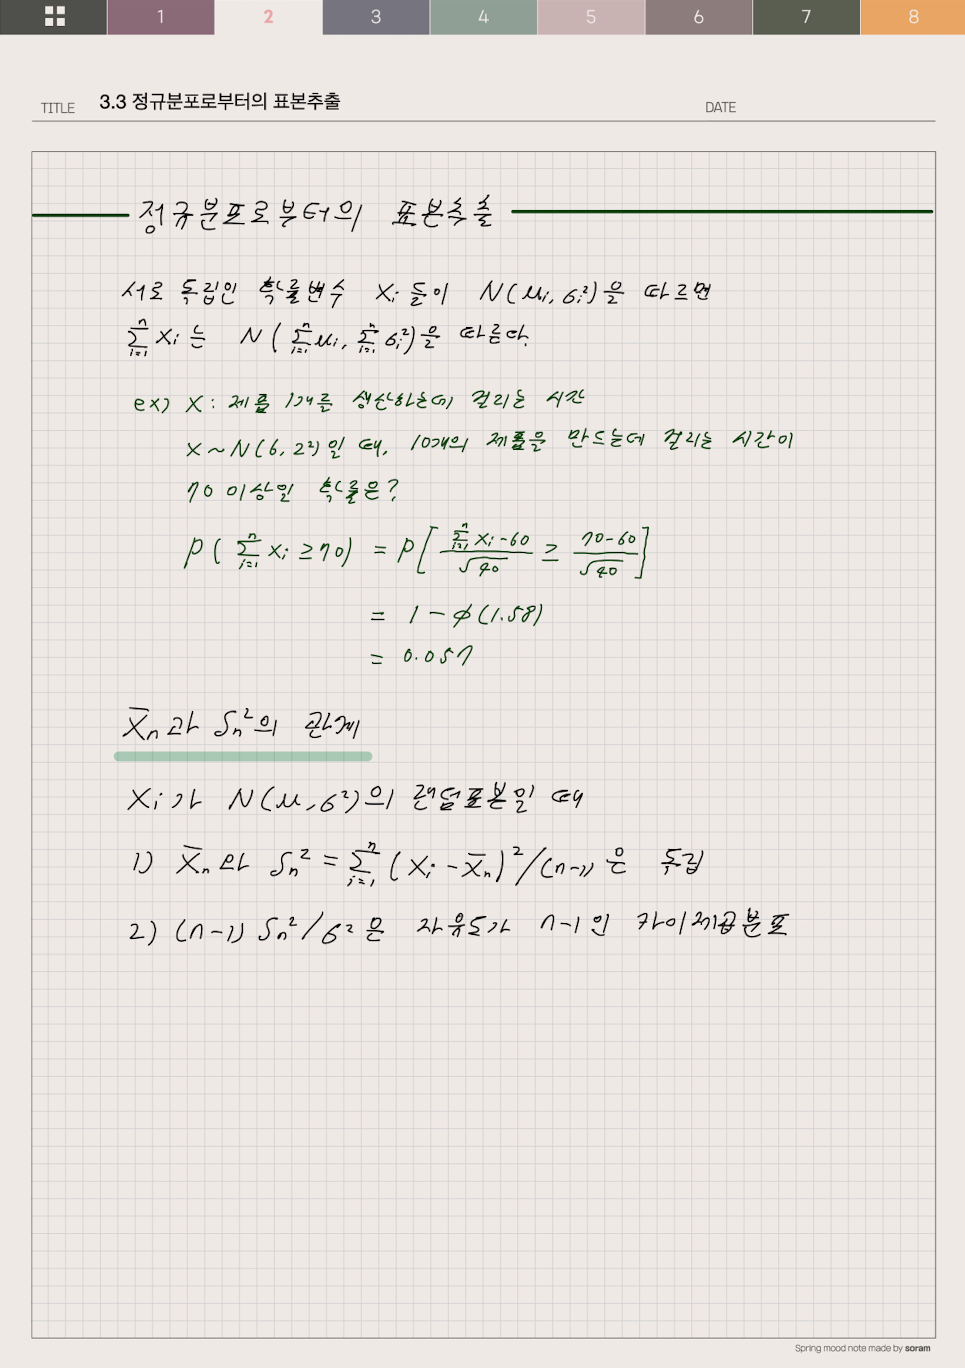 1 2 3 4 5 6 7 8
TITLE 3.3 정규분포로부터의 표본추출 DATE
정규분포로부터의 표본추출
서로 독립인 확률변수 Xi 들이 N(μi, σi²)을 따르면
Σ(i=1..n) Xi 는 N( Σ(i=1..n) μi, Σ(i=1..n) σi²)을 따른다.
ex) X : 제품 1개를 생산하는데 걸리는 시간
X ~ N(6, 2²)일 때, 10개의 제품을 만드는데 걸리는 시간이
70 이상일 확률은?
P( Σ(i=1..n) Xi ≥ 70) = P[ (Σ(i=1..n) Xi - 60)/√40 ≥ (70-60)/√40 ]
= 1 - φ(1.58)
= 0.057
X̄n과 Sn²의 관계
Xi가 N(μ, σ²)의 랜덤표본일 때
1) X̄n 와 Sn² = Σ(i=1..n) (Xi - X̄n)²/(n-1)은 독립
2) (n-1) Sn²/σ²은 자유도가 n-1인 카이제곱분포
Spring mood note made by soram